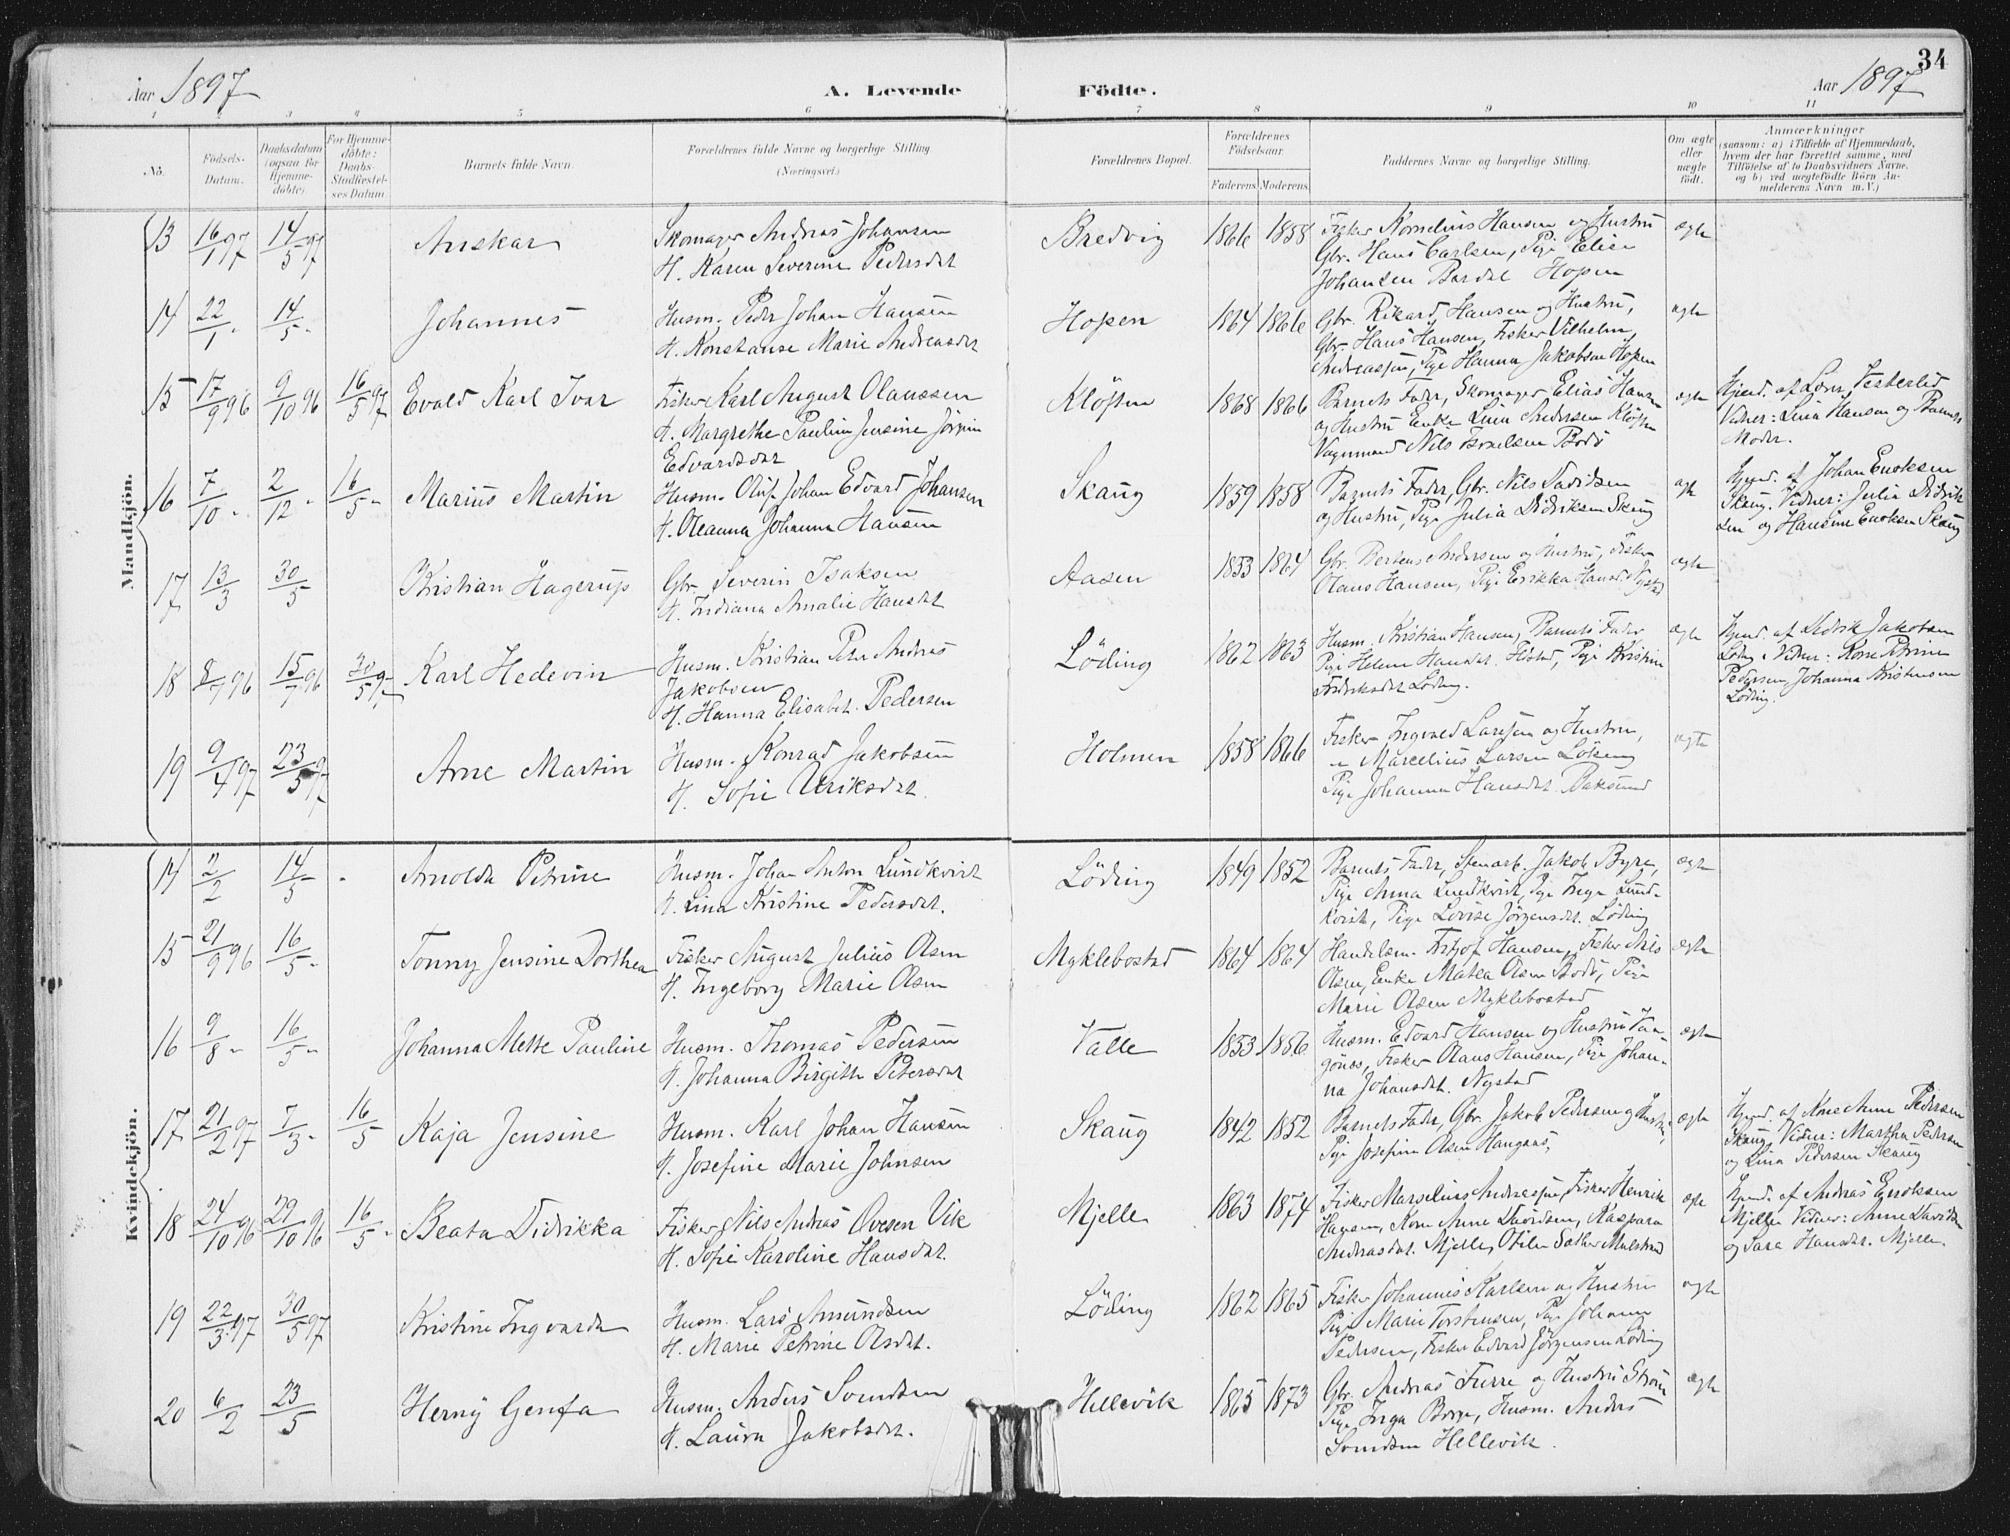 34
Aar 1897 A. Levende Födte. Aar 1897
1 2 3 4 5 6 7 8 9 10 11
No. Födsels-Datum. Daabsdatum (ogsaa for Hjemme-döbte). For Hjemme-döbte: Daabs-Stadfæstel-ses Datum Barnets fulde Navn. Forældrenes fulde Navne og borgerlige Stilling (Næringsvei.) Forældrenes Bopæl. Forældrenes Födselsaar. Faderens Moderens. Faddernes Navne og borgerlige Stilling. Om ægte eller uægte födt. Anmærkninger
(saasom: a) i Tilfælde af Hjemmedaab,
hvem der har forrettet samme, med
Tilföielse af to Daabsvidners Navne.
og b) ved uægtefödte Börn An-
melderens Navn m. V.)
Mandkjön.
13 16/1 97 14/5 97 Anskar Skomager Andreas Johansen Bredvig 1866 1858 Fisker Kornelius Hansen og Hustru ægte
H. Karen Severine Pedersdat Gbr. Hans Carlsen, Pige Elise
Johansen Bardal Hopen
14 22/1 - 14/5 - Johannes Husm. Peder Johan Hansen Hopen 1864 1866 Gbr. Rikard Hansen og Hustru, ægte
H. Konstanse Marie Andreasdat Gbr. Hans Hansen, Fisker Vilhelm
Andreassen, Pige Hanna Jakobsen Hopen
15 17/9 96 9/10 96 16/5 97 Evald Karl Ivar Fisker Karl August Olaussen Klöften 1868 1866 Barnets Fader, Skomager Elias Hansen ægte Hjemd. af Vesterlid
H. Margrethe Pauline Jensine Jörgine og Hustru Enke Lina Andersen Klöften Vidner: Lina Hansen og Barnets
Edvardsdat Vognmand Nils Israelsen Bodö Moder.
16 7/10 - 2/12 - 16/5 - Marius Martin Husm. Oluf Johan Edvard Johansen Skaug 1859 1858 Barnets Fader, Gbr. Nils Davidsen ægte Hjemd. af Johan Enoksen
H. Oleanna Johanna Hansen og Hustru, Pige Julia Didriksen Skaug Skaug. Vidner: Julia Didrik
sen og Hansine Enoksen Skaug
17 13/3 30/5 Kristian Hagerup Gbr. Severin Isaksen Aasen 1853 1864 Gbr. Andersen og Hustru, Fisker ægte
H. Indiana Amalie Hansdat Olaus Hansen, Pige Erikka Hansd. Nystad
18 8/7 96 15/7 96 30/5 97 Karl Hedevin Husm. Kristian Peter Andreas Löding 1862 1863 Husm. Kristian Hansen, Barnets Fader ægte Hjemd. af Jakobsen
Jakobsen Pige Helene Hansdat. Pige Kristine Löding. Vidner: Kone Petrine
H. Hanna Elisabet Pedersen Fredriksdat Löding. Pedersen, Johanna Kristensen
Löding.
19 9/4 97 23/5 97 Arne Martin Husm. Konrad Jakobsen Holmen 1858 1866 Fisker Ingvald Larssen og Hustru, ægte
H. Sofie Ulriksdat. " Marcelius Larsen
Pige Johanna Hansdat.
Kvindekjön.
14 2/2 14/5 - Arnolda Petrine Husm. Johan Anton Lundkvist Löding 1849 1852 Barnets Fader, Stenarb. Jakob Byre, ægte
H. Lina Kristine Pedersdat. Pige Anna Lundkvist, Pige Inga Lund-
kvist, Pige Lovise Jörgensdat. Löding
15 21/9 96 16/5 - Tonny Jensine Dorthea Fisker August Julius Olsen Myklebostad 1864 1864 Handelsm. Fritjof Hansen, Fisker Nils ægte
H. Ingeborg Marie Olsen Olsen, Enke Matea Olsen Bodö, Pige
Marie Olsen Myklebostad
16 9/8 - 16/5 - Johanna Mette Pauline Husm. Thomas Pedersen Valle 1853 1856 Husm. Edvard Hansen og Hustru Vaa- ægte
H. Johanna Birgitte Petersdat gönes, Fisker Olaus Hansen, Pige Johan-
na Johansdat. Nystad
17 21/2 97 7/3 - 16/5 Kaja Jensine Husm. Karl Johan Hansen Skaug 1842 1852 Barnets Fader, Gbr. Jakob Pedersen og Hustru, ægte Hjemd. af Kone Anne Pedersen
H. Josefine Marie Johnsen Pige Josefine Olsen Haugaas, Skaug, Vidner: Martha Pedersen
og Lina Pedersen Skaug
18 24/10 96 29/10 96 16/5 - Beata Didrikka Fisker Nils Andreas Ovesen Vik Mjelle 1863 1874 Fisker Marselius Andreassen, Fisker Henrik ægte Hjemd. af Andreas Enoksen
H. Sofie Karoline Hansdat. Hansen, Kone Anne Davidsen, Kaspara Mjelle Vidner: Anne Davidsen
Andreasdat. Mjelle, og Sara Hansdat. Mjelle.
19 22/3 97 30/5 97 Kristine Ingvarda Husm. Lars Amundsen Löding 1862 1865 Fisker Johannes Karlsen og Hustru ægte
H. Marie Petrine Olsdat. Pige Marie Torstensen, Pige Johanne
Pedersen, Fisker Edvard Jörgensen Löding
20 6/2 23/5 Herny Genfa Husm. Anders Svendsen Hellevik 1865 1873 Gbr. Andreas Furre og Hustru Ström ægte
H. Laura Jakobsdat. Pige Inga Berge, Husm. Anders
Svendsen Hellevik.